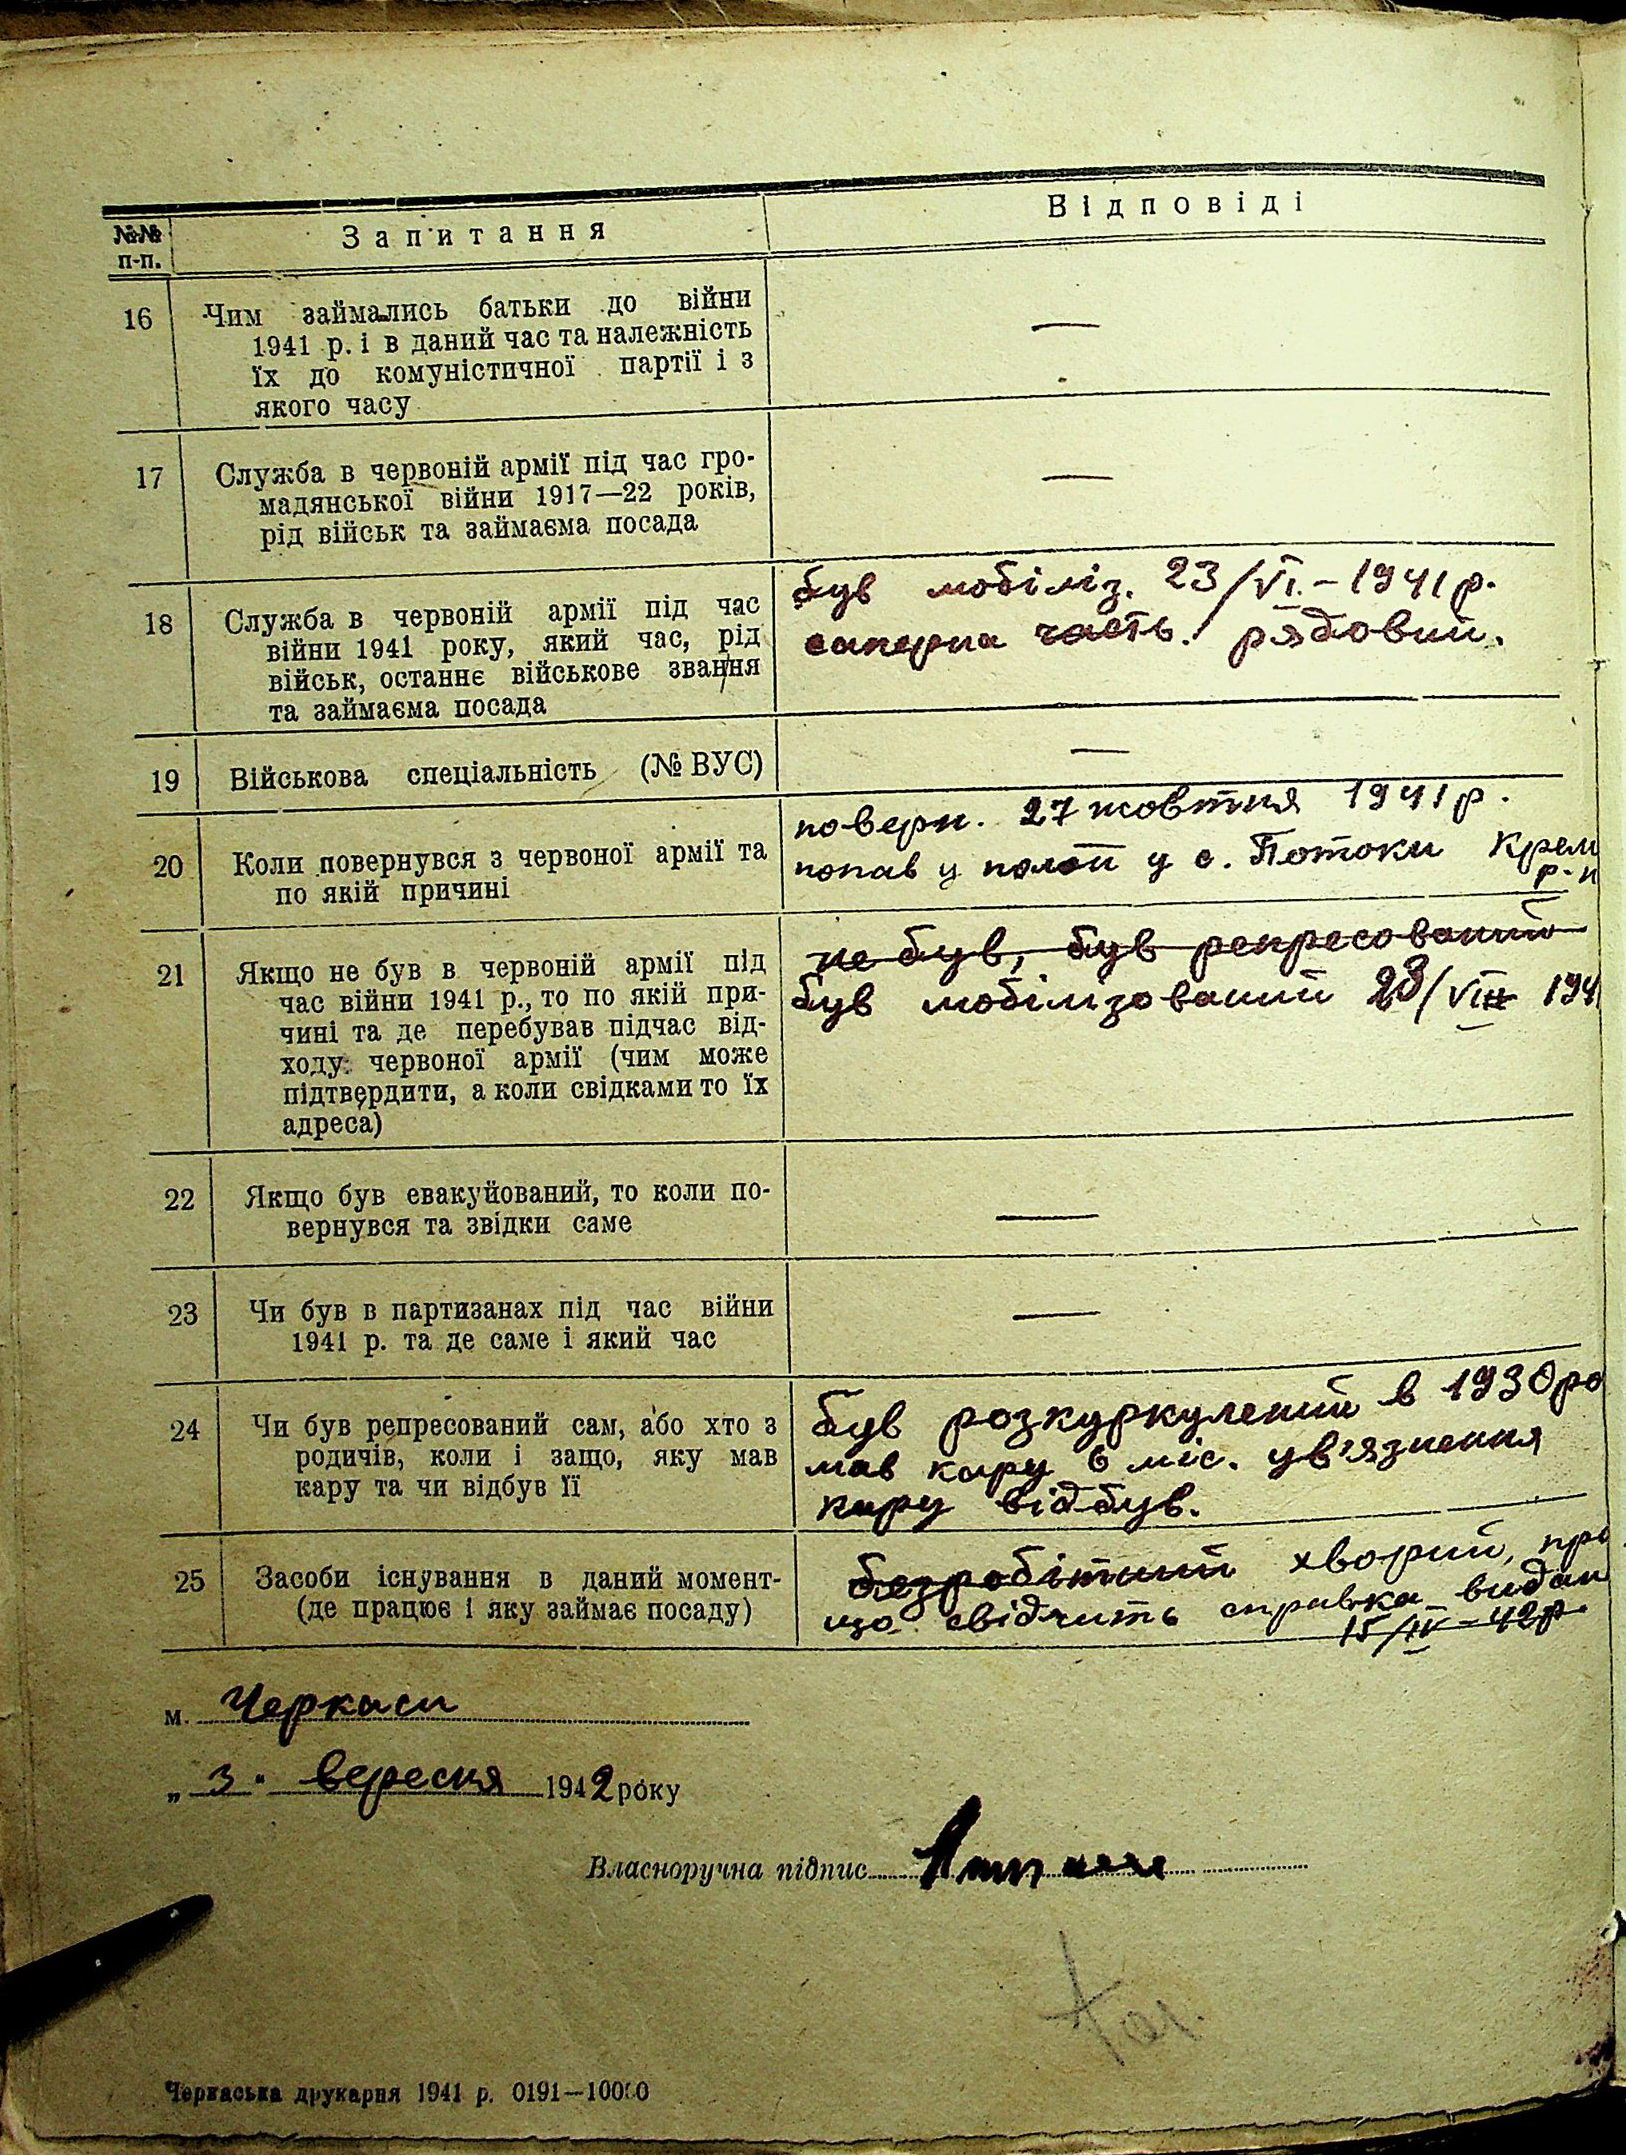 №№ п-п.
Запитання
Відповіді
16
Чим займались батьки до війни
1941 р. і в даний час та належність
їх до комуністичної партії і з
якого часу
—
17
Служба в червоній армії під час гро-
мадянської війни 1917—22 років,
рід військ та займаєма посада
—
18
Служба в червоній армії під час
війни 1941 року, який час, рід
військ, останнє військове звання
та займаєма посада
був мобіліз. 23/VI.-1941р.
саперна часть. рядовий.
19
Військова спеціальність (№ ВУС)
—
20
Коли повернувся з червоної армії та
по якій причині
поверн. 27 жовтня 1941р.
попав у полон у с. Потоки Крем
р-н
21
Якщо не був в червоній армії під
час війни 1941 р., то по якій при-
чині та де перебував підчас від-
ходу червоної армії (чим може
підтвердити, а коли свідками то їх
адреса)
не був, був репресований
був мобілізований 23/VI 194
22
Якщо був евакуйований, то коли по-
вернувся та звідки саме
—
23
Чи був в партизанах під час війни
1941 р. та де саме і який час
—
24
Чи був репресований сам, або хто з
родичів, коли і защо, яку мав
кару та чи відбув її
був розкуркулений в 1930 ро
мав кару 6 міс. ув'язнення
кару відбув.
25
Засоби існування в даний момент-
(де працює і яку займає посаду)
безробітний хворий, про
що свідчить справка видан
15/IV-42р.
м. Черкаси
„3" вересня 1942 року
Власноручна підпис
Черкаська друкарня 1941 р. 0191—10000